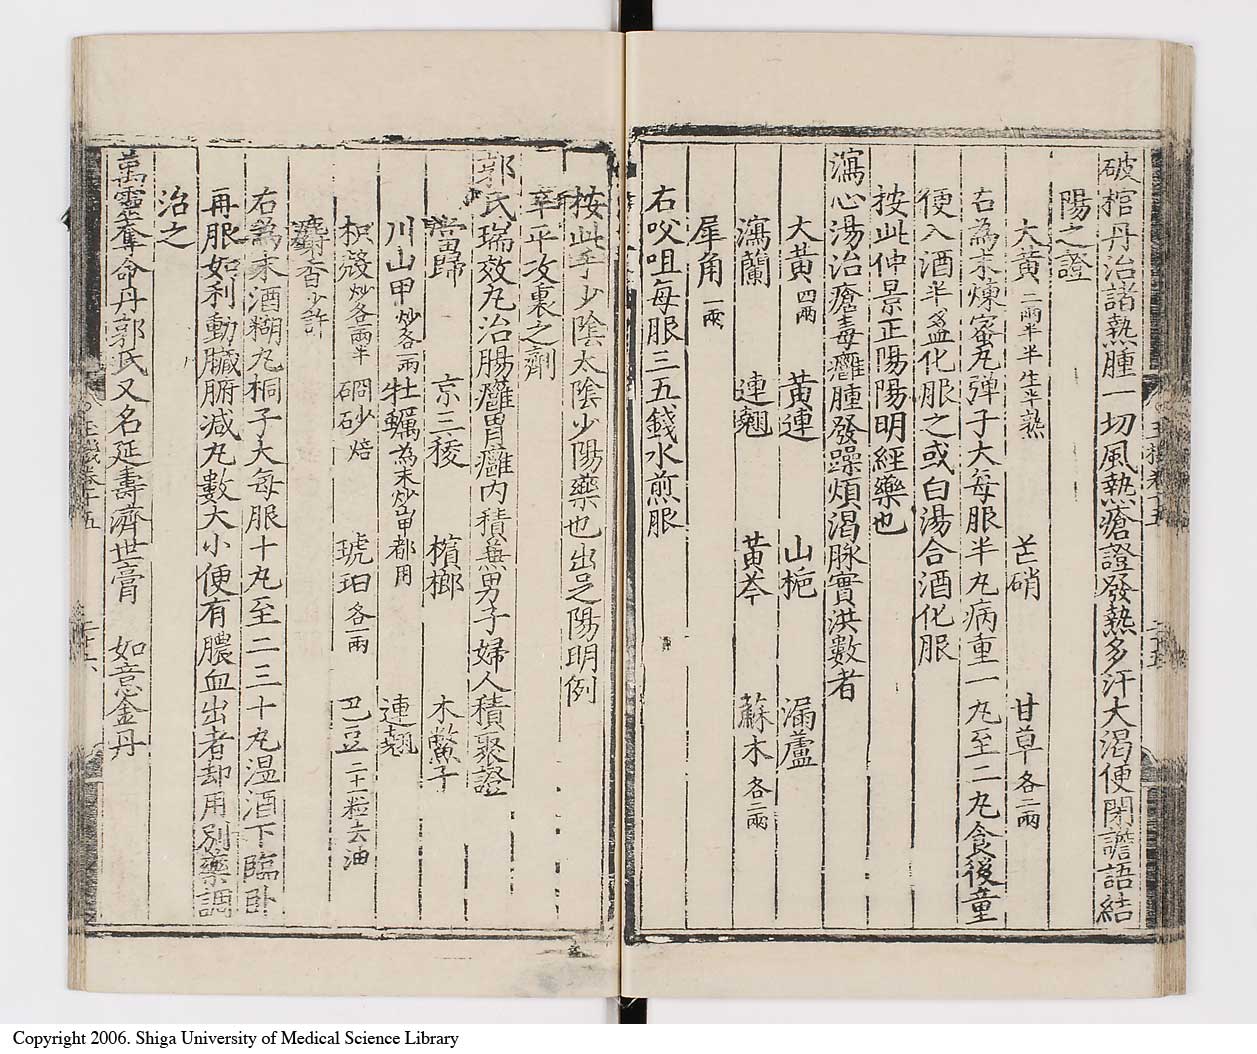 破棺丹治諸熱腫一切風熱瘡證發熱多汗大渴便閉譫語結
陽之證
大黃二兩半半生半熟 芒硝 甘草各二兩
右為末煉蜜丸彈子大每服半丸病重一丸至二丸食後童
便入酒半盞化服之或白湯合酒化服
按此仲景正陽陽明經藥也
瀉心湯治瘡毒癰腫發躁煩渴脉實洪數者
大黃四兩 黃連 山梔 漏蘆
瀉蘭 連翹 黃芩 蘇木各二兩
犀角一兩
右㕮咀每服三五錢水煎服
按此手少陰太陰少陽藥也出足陽明例
辛平攻裏之劑
郭氏瑞效丸治腸癰胃癰內積兼男子婦人積聚證
當歸 京三稜 檳榔 木鱉子
川山甲炒各一兩 牡蠣為末炒甲都用 連翹
枳殼炒各一兩半 硇砂焙 琥珀各一兩 巴豆二十一粒去油
麝香少許
右為末酒糊丸桐子大每服十丸至二三十丸溫酒下臨卧
再服如利動臟腑减丸數大小便有膿血出者却用別藥調
治之
萬靈奪命丹郭氏又名延壽濟世膏 如意金丹
Copyright 2006. Shiga University of Medical Science Library